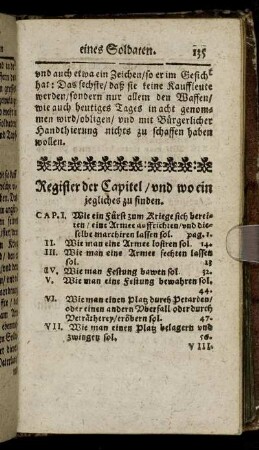 eines Soldaten. 135
vnd auch etwa ein Zeichen/ so er im Gesicht
hat: Das sechste/ daß sie keine Kauffleute
werden/ sondern nur allein den Waffen/
wie auch heutiges Tages in acht genom-
men wird/ obligen/ vnd mit Bürgerlicher
Handthierung nichts zu schaffen haben
wollen.
Register der Capitel/ vnd wo ein
jegliches zu finden.
CAP. I. Wie ein Fürst zum Kriege sich berei-
ten/ eine Armee auffrichten/ vnd die-
selbe marchiren lassen sol. pag. 1.
II. Wie man eine Armee losiren sol. 14.
III. Wie man eine Armee fechten lassen
sol. 23
IV. Wie man Festung bawen sol. 32.
V. Wie man eine Festung bewahren sol.
44.
VI. Wie man einen Platz durch Petarden/
oder einen andern Vberfall oder durch
Verrätherey/ eröbern sol. 47.
VII. Wie man einen Platz belagern vnd
zwingen sol. 56.
VIII.